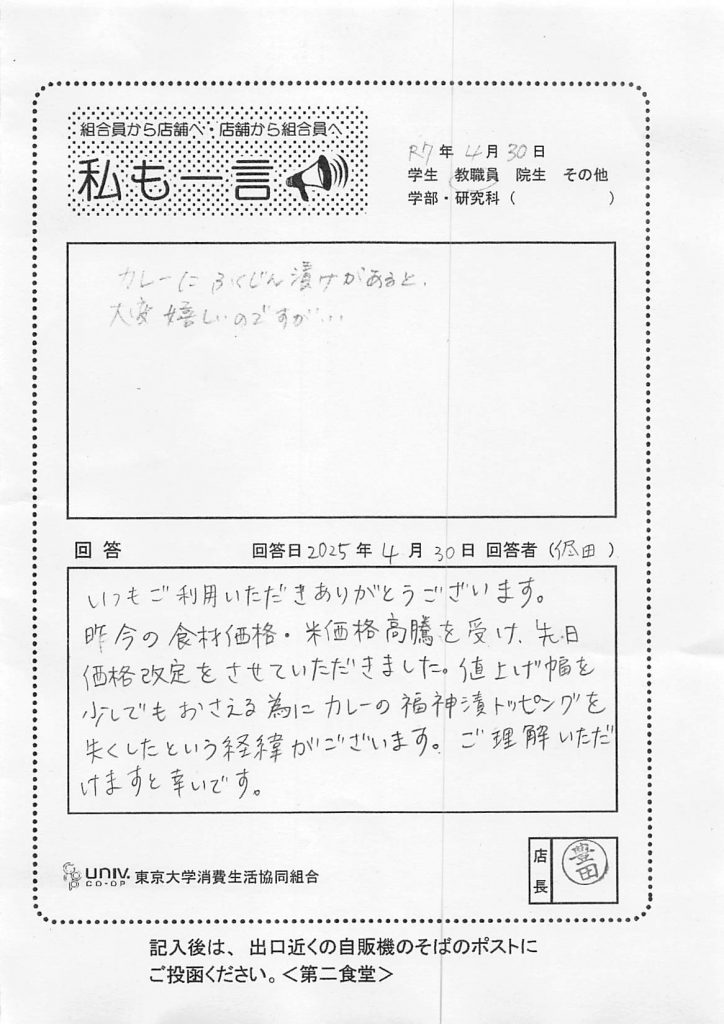 組合員から店舗へ・店舗から組合員へ
私も一言
R7年4月30日
学生 教職員 院生 その他
学部・研究科( )
カレーにふくじん漬けがあると、
大変嬉しいのですが…
回答 回答日2025年4月30日 回答者( 田)
いつもご利用いただきありがとうございます。
昨今の食材価格・米価格高騰を受け、先日
価格改定をさせていただきました。値上げ幅を
少しでもおさえる為にカレーの福神漬トッピングを
失くしたという経緯がございます。ご理解いただ
けますと幸いです。
UNIV.
CO-OP
東京大学消費生活協同組合
店長
豊田
記入後は、出口近くの自販機のそばのポストに
ご投函ください。<第二食堂>